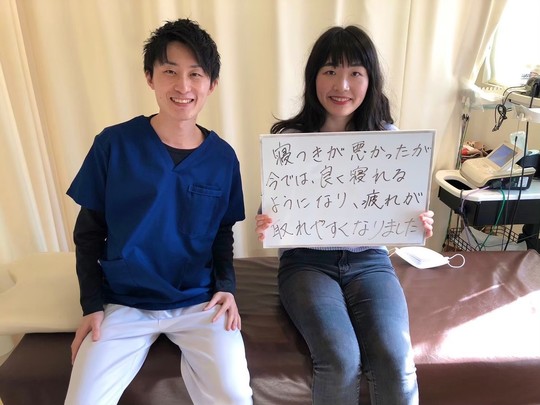 寝つきが悪かったが
今では、良く寝れる
ようになり、疲れが
取れやすくなりました